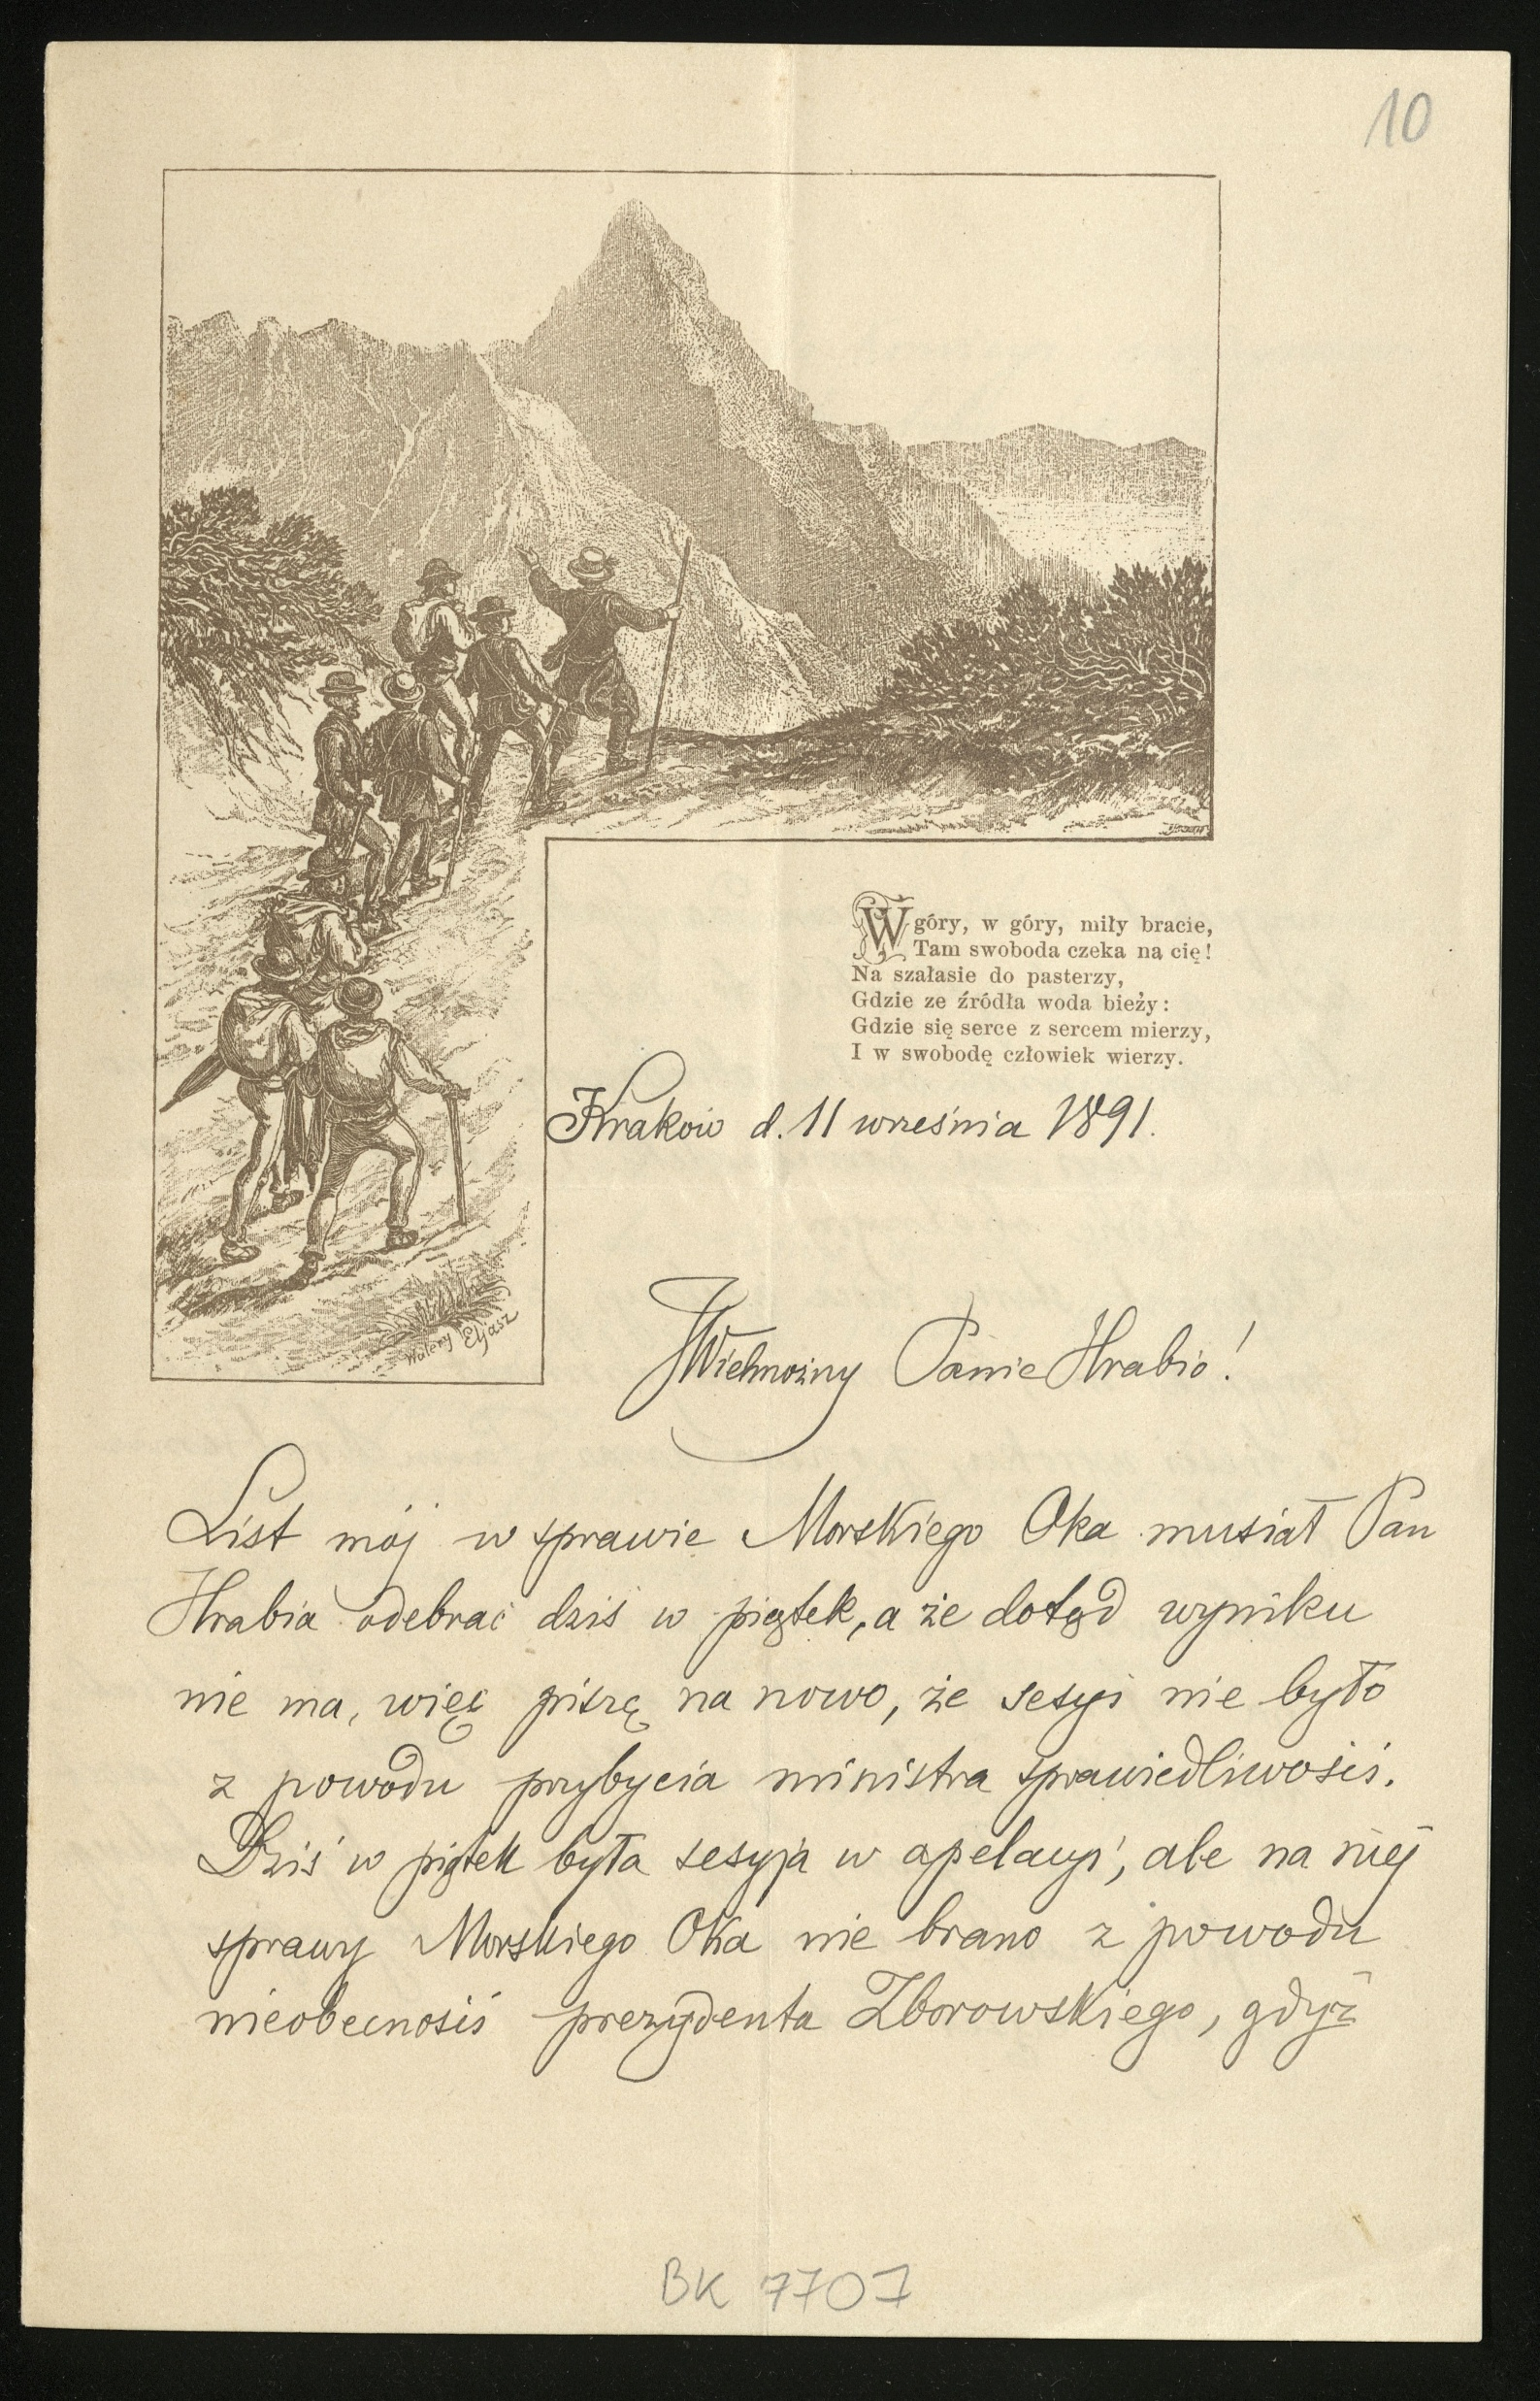 10
W góry, w góry, miły bracie,
Tam swoboda czeka na cię!
Na szałasie do pasterzy,
Gdzie ze źródła woda bieży:
Gdzie się serce z sercem mierzy,
I w swobodę człowiek wierzy.
Kraków d. 11 września 1891.
Walery Eljasz
JWielmożny Panie Hrabio!
List mój w sprawie Morskiego Oka musiał Pan
Hrabia odebrać dziś w piątek, a że dotąd wyniku
nie ma, więc piszę na nowo, że sesyi nie było
z powodu przybycia ministra sprawiedliwości.
Dziś w piątek była sesyja w apelacyi, ale na niej
sprawy Morskiego Oka nie brano z powodu
nieobecności prezydenta Zborowskiego, gdyż
BK 7707